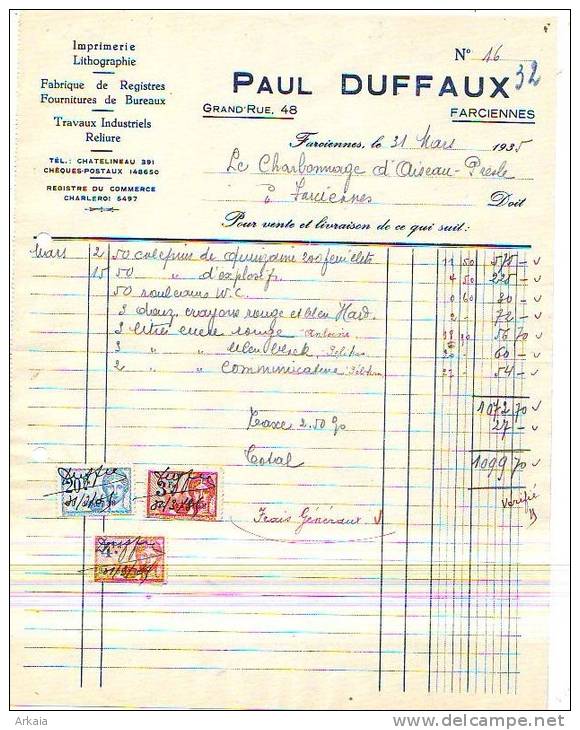 Imprimerie
Lithographie
Fabrique de Registres
Fournitures de Bureaux
Travaux Industriels
Reliure
TÉL.: CHATELINEAU 391
CHÈQUES-POSTAUX 148650
REGISTRE DU COMMERCE
CHARLEROI 5497
N° 16
32
PAUL DUFFAUX
GRAND'RUE, 48
FARCIENNES
Farciennes, le 31 Mars 1935
Le Charbonnage d'Aiseau-Presle
à Farciennes Doit
Pour vente et livraison de ce qui suit:
Mars 2 50 calepins de quinzaine 200 feuillets 11 50 575 -
15 50 " d'explosifs 4 50 225 -
50 rouleaux W.C. 0 60 30 -
3 douz. crayons rouge et bleu Hard. 2 - 72 -
3 litres encre rouge 18 90 56 70
3 " " bleu black 20 - 60 -
2 " " communicative 27 - 54 -
1072 70
Taxe 2.50 % 27 -
Total 1099 70
Vérifié
Frais Généraux
Arkaia
www.delcampe.net